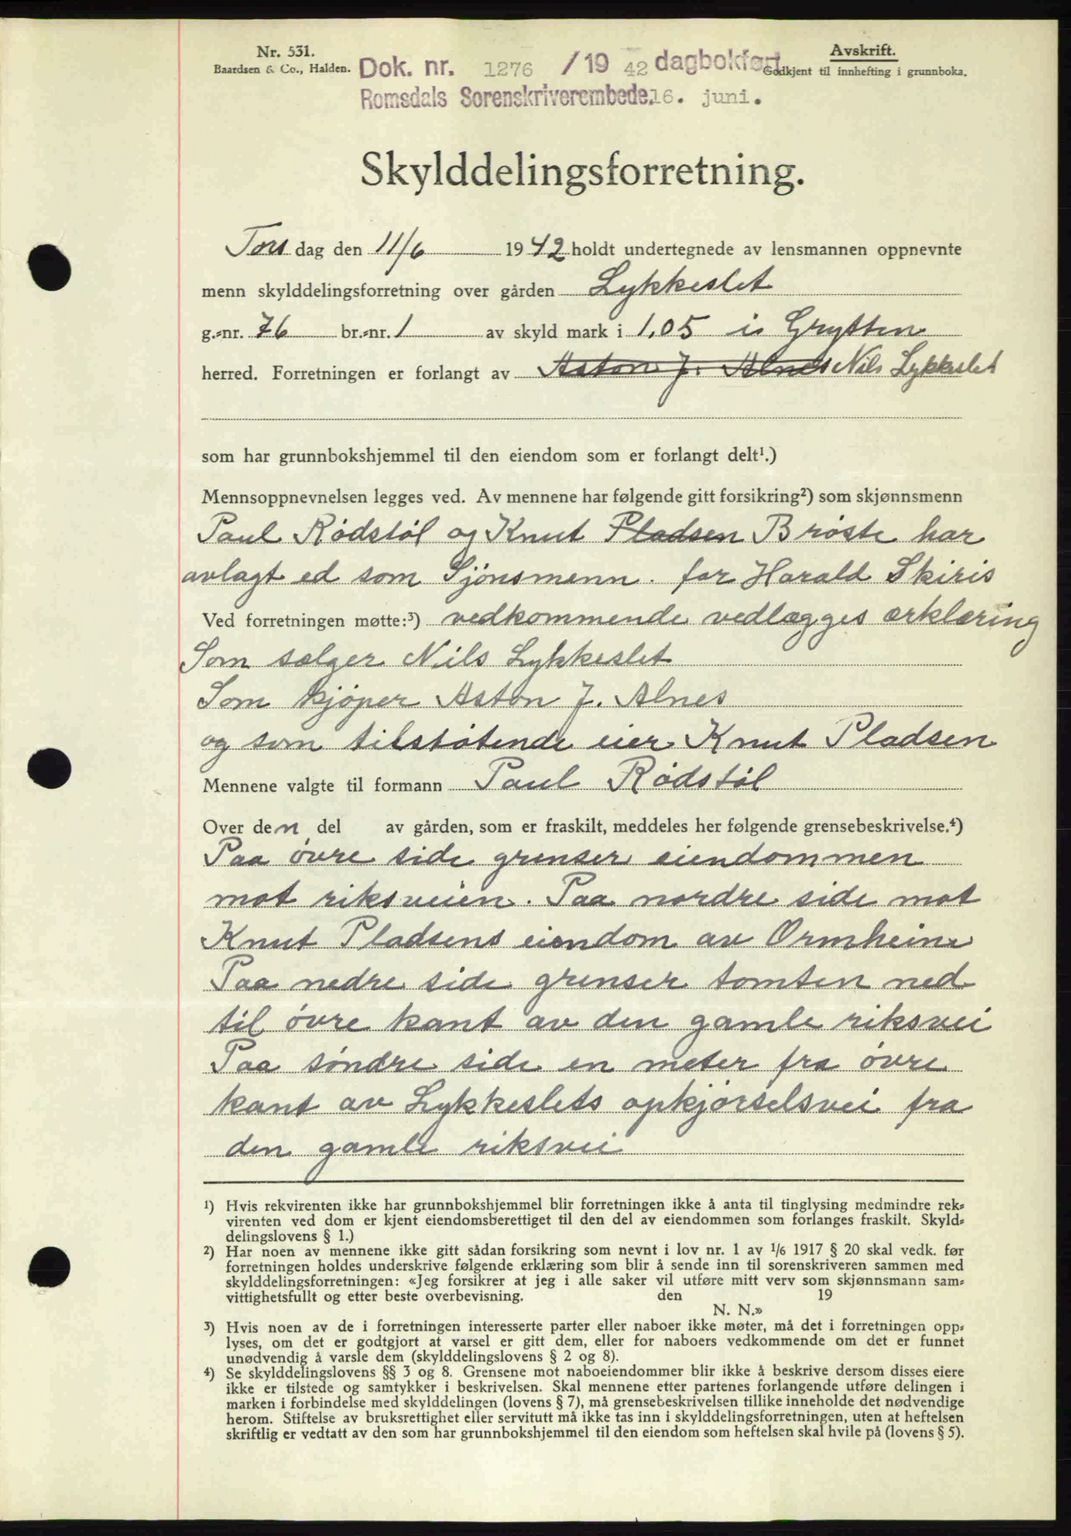 Nr. 531.
Baardsen & Co., Halden.
Avskrift.
Godkjent til innhefting i grunnboka.
Dok. nr. 1276 /19 42 dagbokført
Romsdals Sorenskriverembede. 16. juni.
Skylddelingsforretning.
Tors dag den 11/6 1942 holdt undertegnede av lensmannen oppnevnte
menn skylddelingsforretning over gården Lykkeslet
g.-nr. 76 br.-nr. 1 av skyld mark i 1,05 i Grytten
herred. Forretningen er forlangt av Aston J. Alnes Nils Lykkeslet
som har grunnbokshjemmel til den eiendom som er forlangt delt¹.)
Mennsoppnevnelsen legges ved. Av mennene har følgende gitt forsikring²) som skjønnsmenn
Paul Rødstøl og Knut Pladsen Brøste har
avlagt ed som Sjönsmenn. for Harald Skiris
Ved forretningen møtte:³) vedkommende vedlægges ærklæring
Som sælger Nils Lykkeslet
Som kjøper Aston J. Alnes
og som tilstøtende eier Knut Pladsen
Mennene valgte til formann Paul Rødstøl
Over den del av gården, som er fraskilt, meddeles her følgende grensebeskrivelse.⁴)
Paa övre side grenser eiendommen
mot riksveien. Paa nordre side mot
Knut Pladsens eiendom av Ormheim
Paa nedre side grenser tomten ned
til övre kant av den gamle riksvei
Paa söndre side en meter fra övre
kant av Lykkeslets opkjörselsvei fra
den gamle riksvei
¹) Hvis rekvirenten ikke har grunnbokshjemmel blir forretningen ikke å anta til tinglysing medmindre rek-
virenten ved dom er kjent eiendomsberettiget til den del av eiendommen som forlanges fraskilt. Skyld-
delingslovens § 1.)
²) Har noen av mennene ikke gitt sådan forsikring som nevnt i lov nr. 1 av 1/6 1917 § 20 skal vedk. før
forretningen holdes underskrive følgende erklæring som blir å sende inn til sorenskriveren sammen med
skylddelingsforretningen: «Jeg forsikrer at jeg i alle saker vil utføre mitt verv som skjønnsmann sam-
vittighetsfullt og etter beste overbevisning. den 19
N. N.»
³) Hvis noen av de i forretningen interesserte parter eller naboer ikke møter, må det i forretningen opp-
lyses, om det er godtgjort at varsel er gitt dem, eller for naboers vedkommende om det er funnet
unødvendig å varsle dem (skylddelingslovens § 2 og 8).
⁴) Se skylddelingslovens §§ 3 og 8. Grensene mot naboeiendommer blir ikke å beskrive dersom disses eiere
ikke er tilstede og samtykker i beskrivelsen. Skal mennene etter partenes forlangende utføre delingen i
marken i forbindelse med skylddelingen (lovens § 7), må grensebeskrivelsen tillike inneholde det nødvendige
herom. Stiftelse av bruksrettighet eller servitutt må ikke tas inn i skylddelingsforretningen, uten at heftelsen
skriftlig er vedtatt av den som har grunnbokshjemmel til den eiendom som heftelsen skal hvile på (lovens § 5).